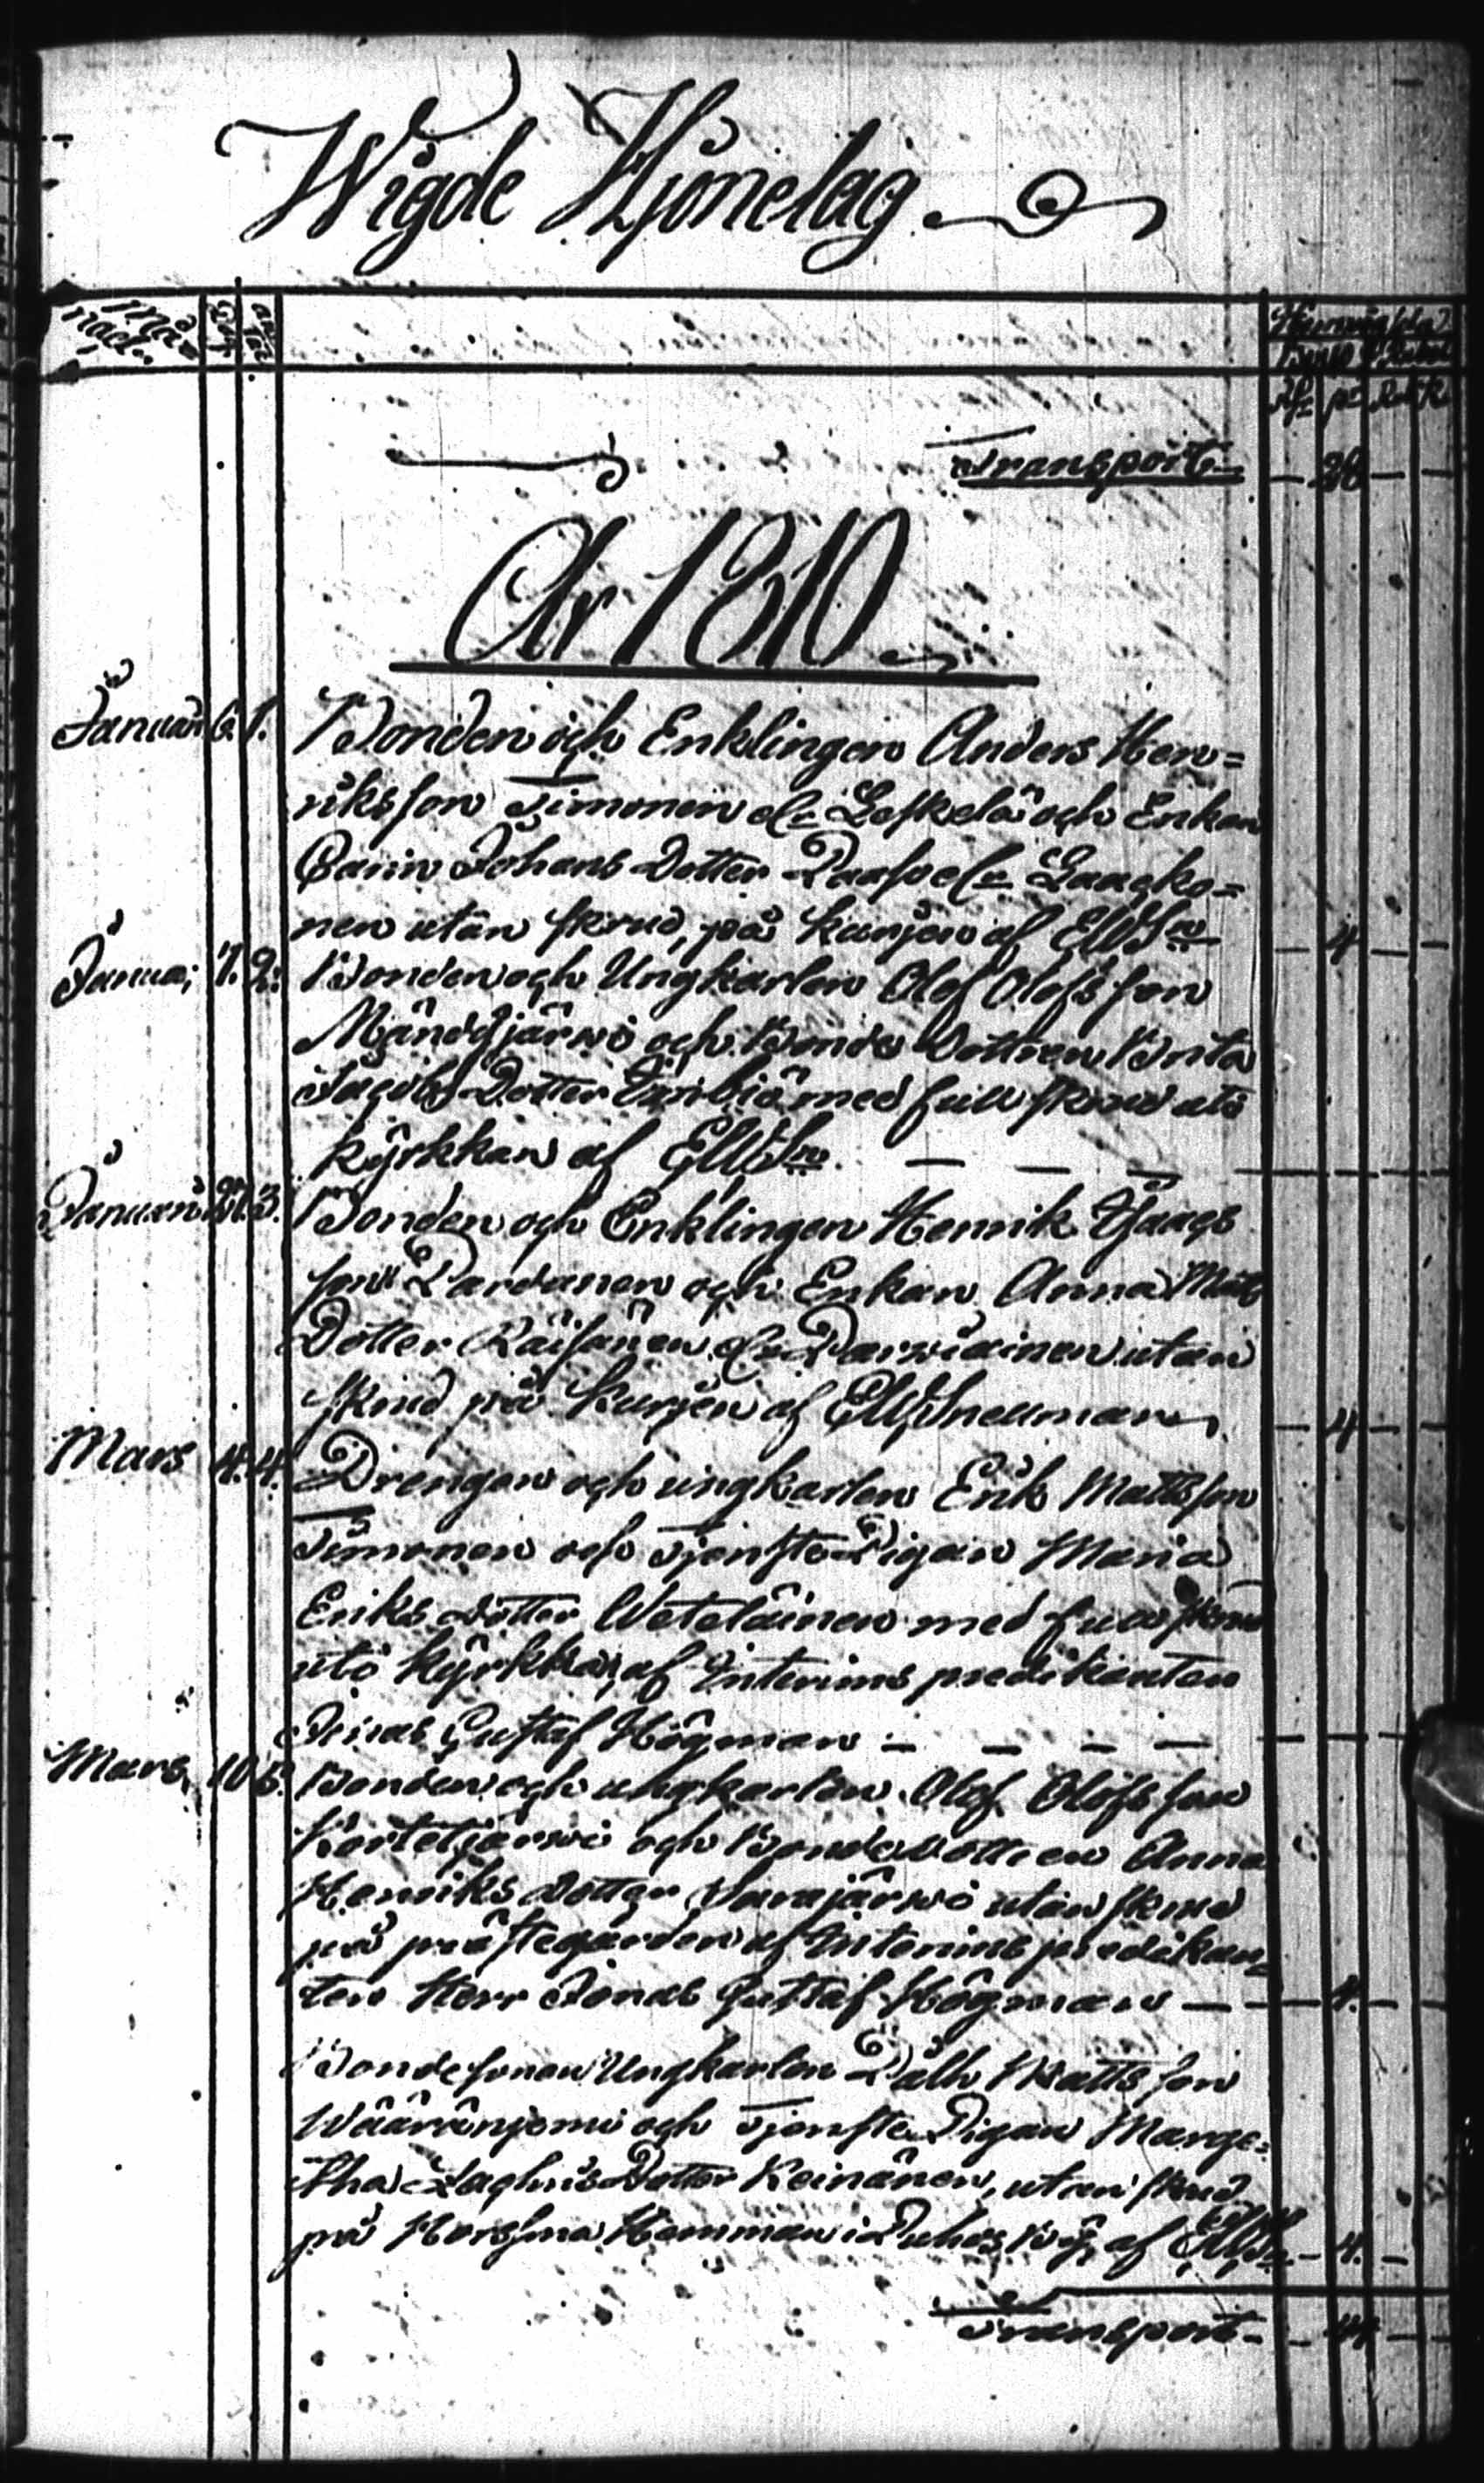 Wigde Hjonelag
Må=
nad.
Transport 28
År 1810
Januari 6. 1. Bonden och Enklingen Anders Hen=
riksson Timonen och Enkan
Carin Johans Dotter Laako=
nen utan skrud, på kurjen af EWSn 4
Januari 7. 2. Bonden och Ungkarlen Olof Olofsson
och Bonde Dottren Brita
Jacobs Dotter med full skrud uti
kyrkkan af EWSn
Januari 3. Bonden och Enklingen Henrik Isaacs
son Pardanen och Enkan Anna Mats
Dotter Räisänen utan
skrud på kurjen af EWSnellman 4
Mars 4. 4. Drengen och ungkarlen Erik Mattsson
Timonen och Tjenste Pigan Maria
Eriks dotter Weteläinen med full skrud
uti kyrkkan, af Interims predikanten
Jonas Gustaf Högman
Mars 10 5. Bonden och ungkarlen Olof Olofsson
Kortetjärwi och Bonde dottren Anna
Henriks dotter Sarajärwi utan skrud
på prästegården af Interims predikan=
ten Herr Jonas Gustaf Högman 4.
Bondesonen Ungkarlen Påhl Mattsson
och Tjenste Pigan Marge=
tha Dotter Keinänen, utan skrud
på Horsma Hemman i af EWSn 4.
Transport 44